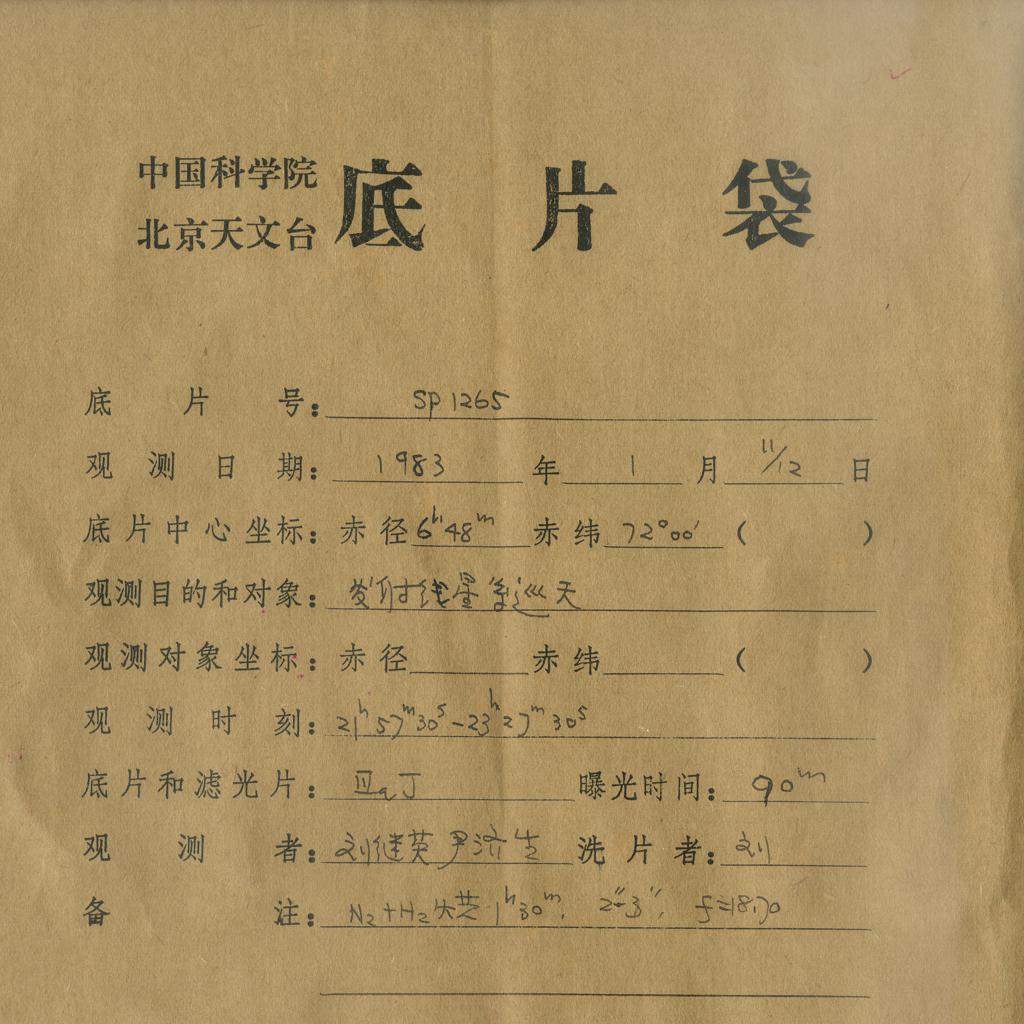 中国科学院
北京天文台 底片袋
底片号: SP1265
观测日期: 1983年1月11/12日
底片中心坐标: 赤径6h48m 赤纬72°00′ ( )
观测目的和对象: 发射线星系巡天
观测对象坐标: 赤径 赤纬 ( )
观测时刻: 21h57m30s-23h27m30s
底片和滤光片: ⅢaJ 曝光时间: 90m
观测者: 刘继英 尹济生 洗片者: 刘
备注: N2+H2 1h30m, 2″-3″, f=18.70